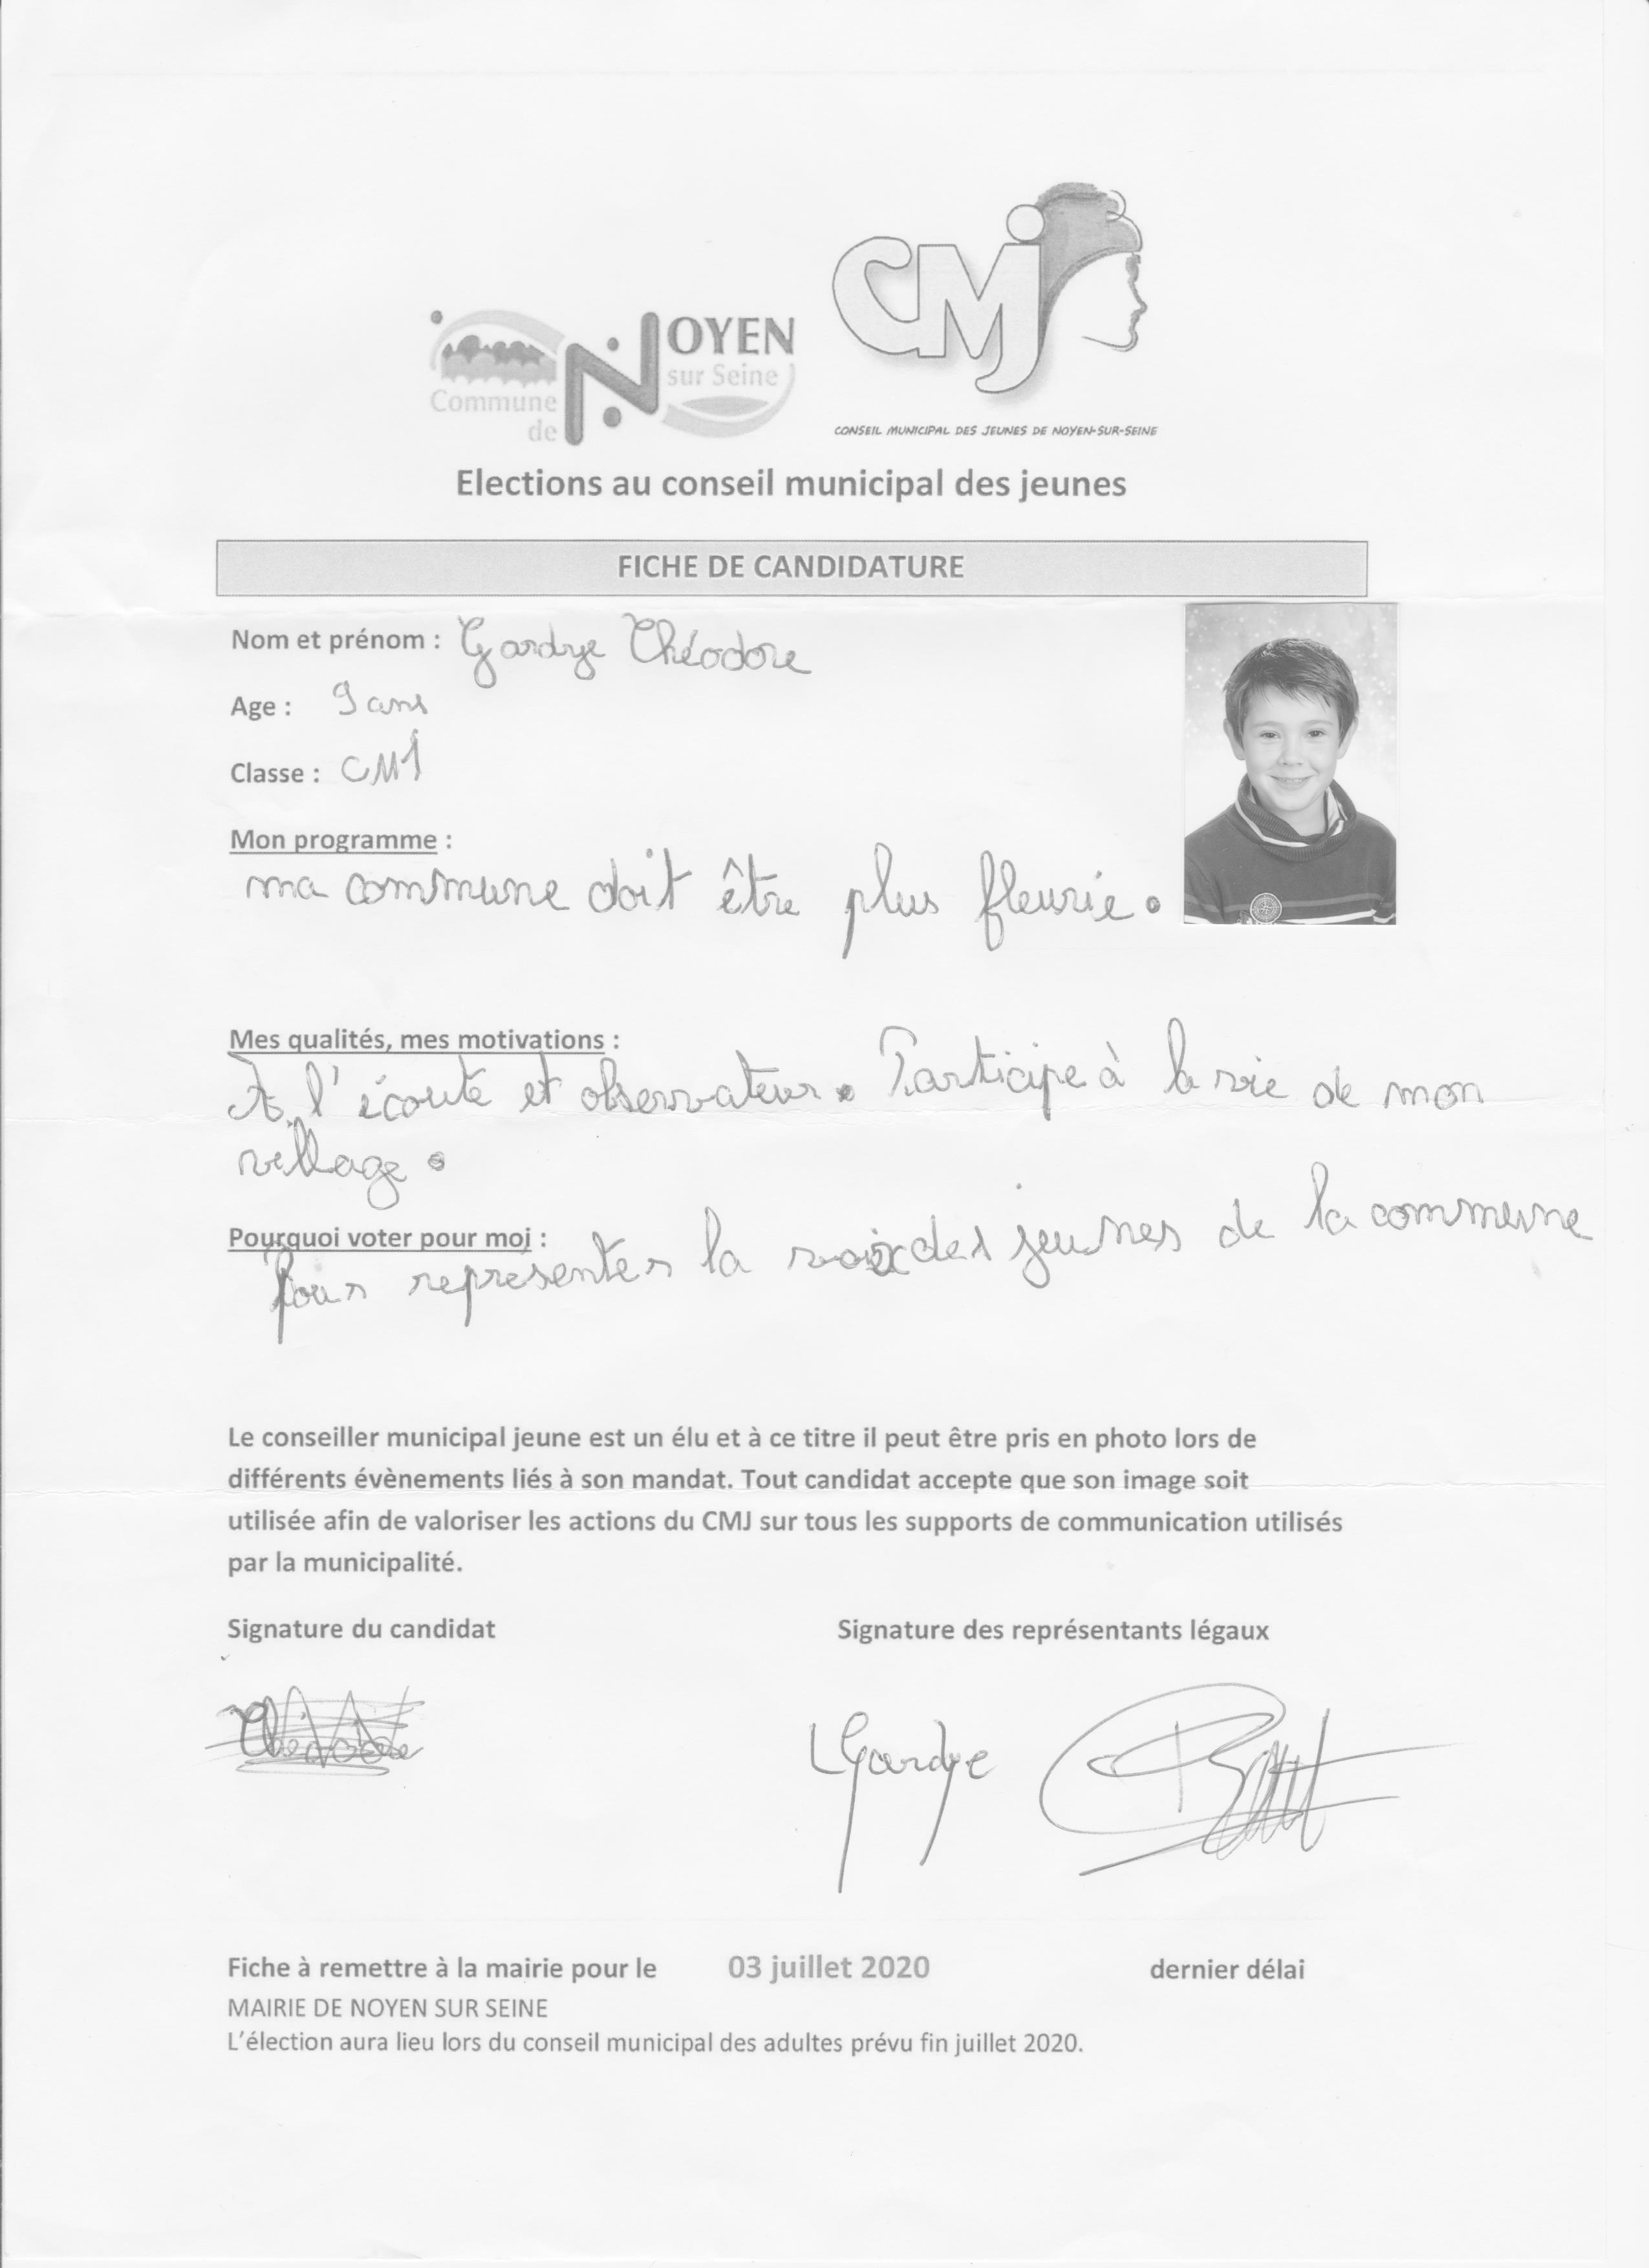 Commune de NOYEN sur Seine
CMJ
CONSEIL MUNICIPAL DES JEUNES DE NOYEN-SUR-SEINE
Elections au conseil municipal des jeunes
FICHE DE CANDIDATURE
Nom et prénom : Gardye Théodore
Age : 9 ans
Classe : CM1
Mon programme :
ma commune doit être plus fleurie.
Mes qualités, mes motivations :
A l'écoute et observateur. Participe à la vie de mon
village.
Pourquoi voter pour moi :
Pour représenter la voix des jeunes de la commune
Le conseiller municipal jeune est un élu et à ce titre il peut être pris en photo lors de
différents évènements liés à son mandat. Tout candidat accepte que son image soit
utilisée afin de valoriser les actions du CMJ sur tous les supports de communication utilisés
par la municipalité.
Signature du candidat Signature des représentants légaux
Théodore Gardye
Fiche à remettre à la mairie pour le 03 juillet 2020 dernier délai
MAIRIE DE NOYEN SUR SEINE
L'élection aura lieu lors du conseil municipal des adultes prévu fin juillet 2020.